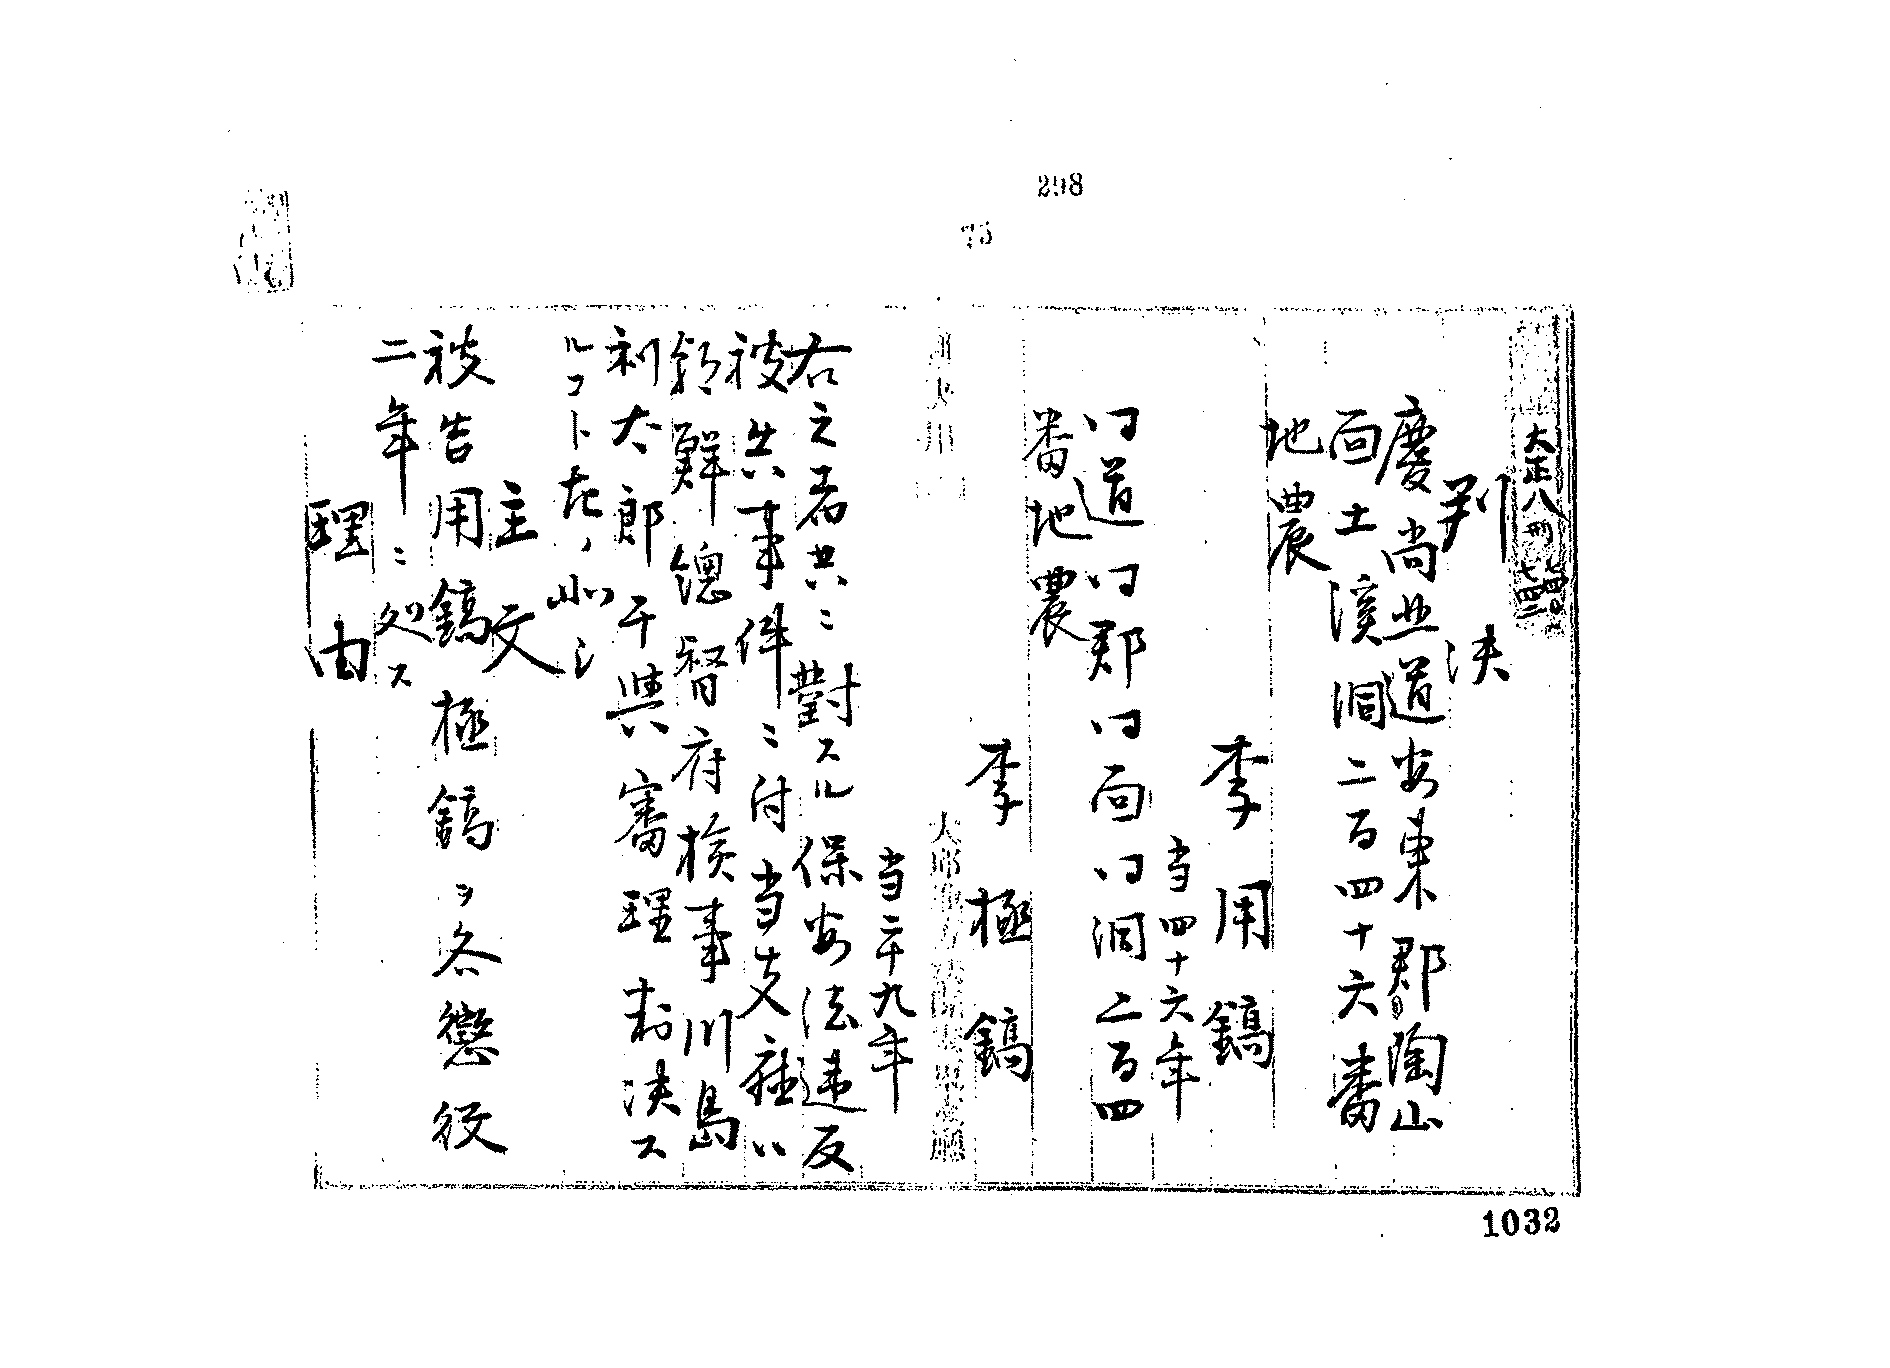 298
75
大正八刑七四〇、七四二
判決
慶尚北道安東郡陶山
面土溪洞二百四十六番
地農
李用鎬
当四十六年
同道同郡同面同洞二百四
番地農
李極鎬
当二十九年
右之者共ニ對スル保安法違反
被告事件ニ付当支廳ハ
朝鮮總督府検事川島
利太郎干與審理判決ス
ルコト左ノ如シ
主文
被告用鎬極鎬ヲ各懲役
二年ニ処ス
理由
1032